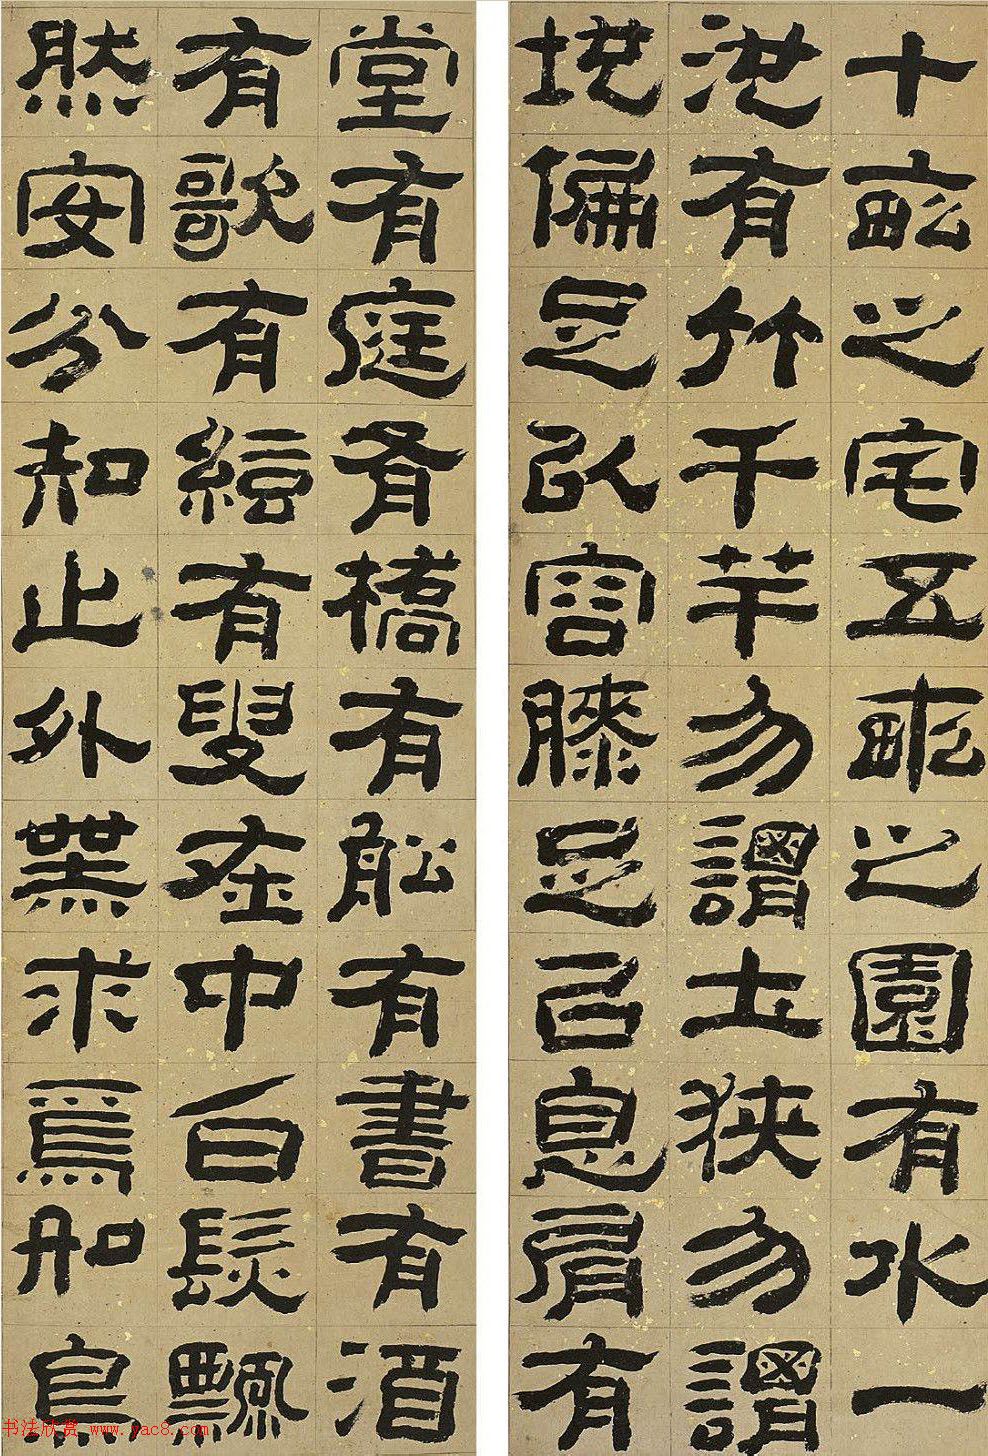 十畝之宅五畝之園有水一
池有竹千竿勿謂土狹勿謂
地偏足以容膝足已息肩有
堂有庭有橋有船有書有酒
有歌有絃有叟在中白鬚飄
然安分知止外無求焉如鳥
书法欣赏 www.yac8.com